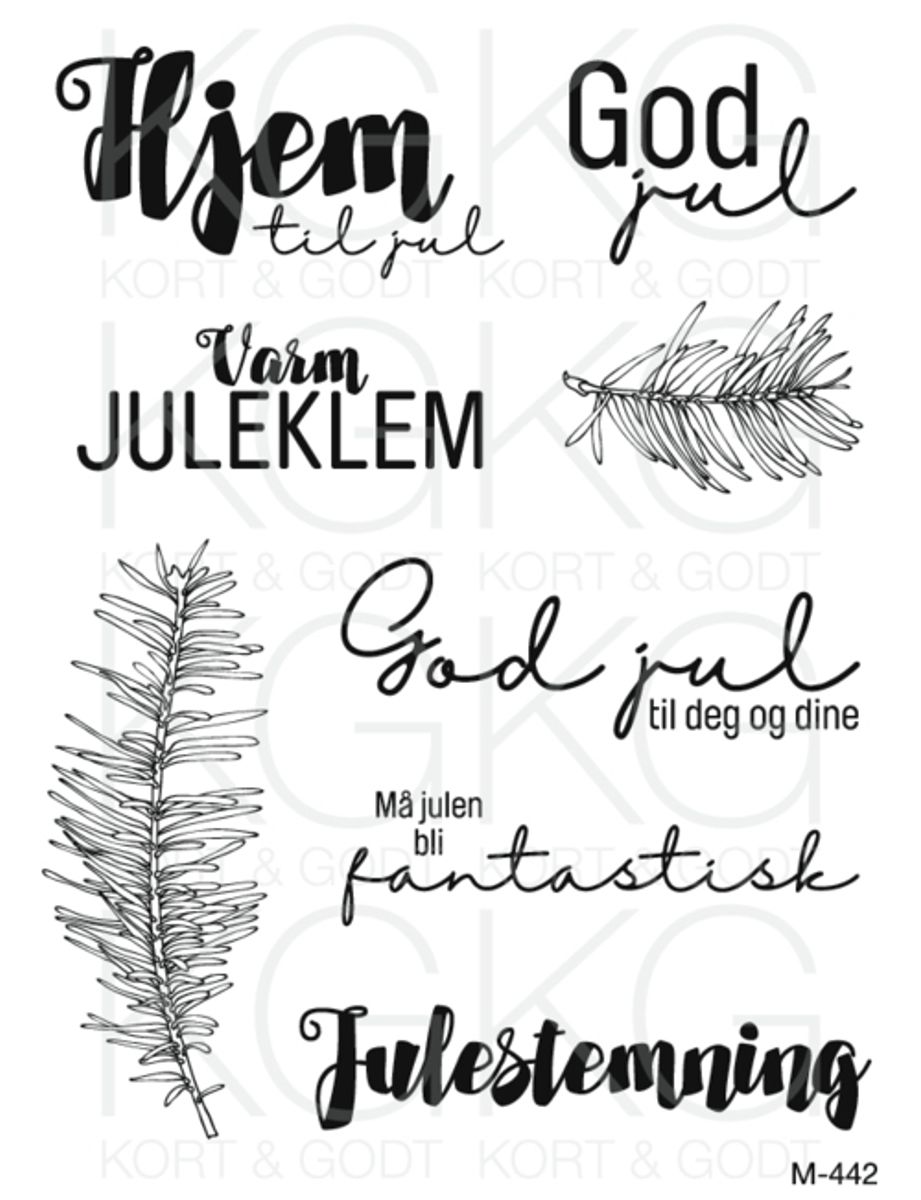 Hjem
til jul
God
jul
Varm
JULEKLEM
God jul
til deg og dine
Må julen
bli
fantastisk
Julestemning
M-442
KG KG
KORT & GODT KORT & GODT
KG KG
KORT & GODT KORT & GODT
KG KG
KORT & GODT KORT & GODT
KG KG
KORT & GODT KORT & GODT